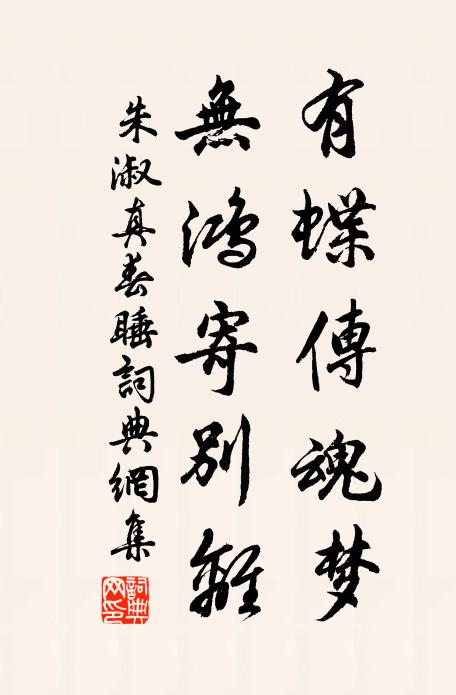 有蝶傳魂梦
無鴻寄別離
朱淑真春睡詞典網集
詞典网印